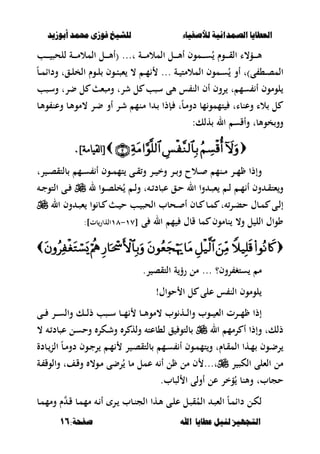 العطايا الصمدانية للأصفياء
للشيخ فوزى محمد أبوزيد
هـؤلاء القـوم يُسـمون أهـل الملامـة ،... (أهـل الملامـة للحبيـب
المصطفى)، أو يُسـمون الملامتيـة ... لأنهـم لا يعبئـون بلـوم الخلـق، ودائمـاً
يلومون أنفسهم، يرون أن النفس هى سبب كل شر، ومبعث كل ضر، وسبب
كل بلاء وعناء، فيتهمونها دوماً، فإذا بـدا منهم شـر أو ضـر لاموهـا وعنفوهـا
ووبخوها، وأقسم الله بذلك:
﴿وَلَآ أُقۡسِمُ بِٱلنَّفۡسِ ٱللَّوَّامَةِ ٢﴾ [القيامة].
وإذا ظهـر مـنهم صـلاح وبـر وخيـر وتقـى يتهمـون أنفسـهم بالتقصـير،
ويعتقـدون أنهـم لـم يعبـدوا الله حـق عبادتـه، ولـم يُخلصـوا لله فـى التوجـه
إلى كمـال حضـرته، كمـا كـان أصـحاب الحبيـب حيـث كـانوا يعبـدون الله
طوال الليل ولا ينامون كما قال فيهم الله فى [١٧-١٨الذاريات]:
﴿كَانُواْ قَلِيلٗا مِّنَ ٱلَّيۡلِ مَا يَهۡجَعُونَ وَبِٱلۡأَسۡحَارِ هُمۡ يَسۡتَغۡفِرُونَ﴾
مم يستغفرون؟ ... من رؤية التقصير.
يلومون النفس على كل الأحوال!
إذا ظهـرت العيـوب والـذنوب لاموهـا لأنهـا سـبب ذلـك والسـر فـى
ذلك، وإذا أكرمهم الله بالتوفيق لطاعته ولذكره وشكره وحسن عبادته لا
يرضـون بهـذا المقـام، ويتهمـون أنفسـهم بالتقصـير لأنهـم يرجـون دومـاً الزيـادة
من العلى الكبير ،...لأن من ظن أنه عمل ما يُرضى مولاه وقـف، والوقفـة
حجاب، وهنا يُؤخر عن أولى الألباب.
لكـن دائمـاً العبـد المُقبـل علـى هـذا الجنـاب يـرى أنـه مهمـا قـدَّم ومهمـا
التجهيز لنيل عطايا الله
صفحة:١٦